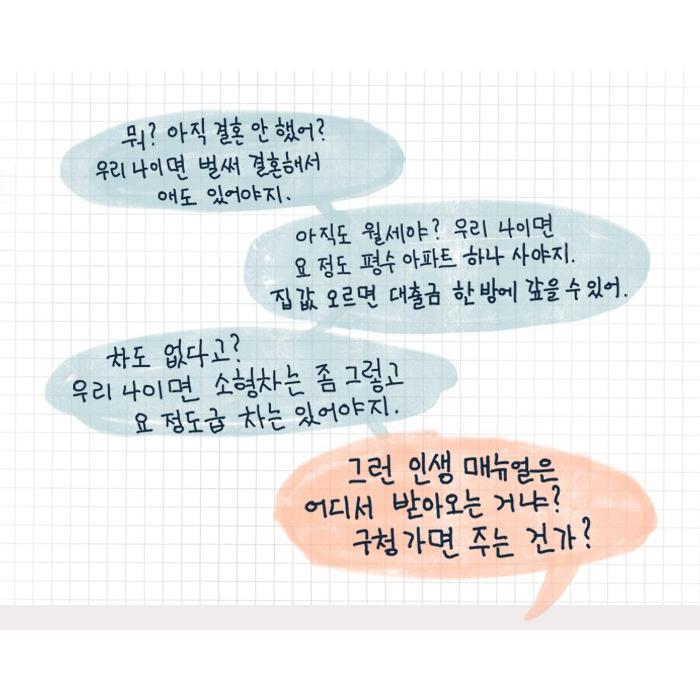 뭐? 아직 결혼 안 했어?
우리 나이면 벌써 결혼해서
애도 있어야지.
아직도 월세야? 우리 나이면
요 정도 평수 아파트 하나 사야지.
집값 오르면 대출금 한방에 갚을 수 있어.
차도 없다고?
우리 나이면 소형차는 좀 그렇고
요 정도급 차는 있어야지.
그런 인생 매뉴얼은
어디서 받아오는 거냐?
구청가면 주는 건가?